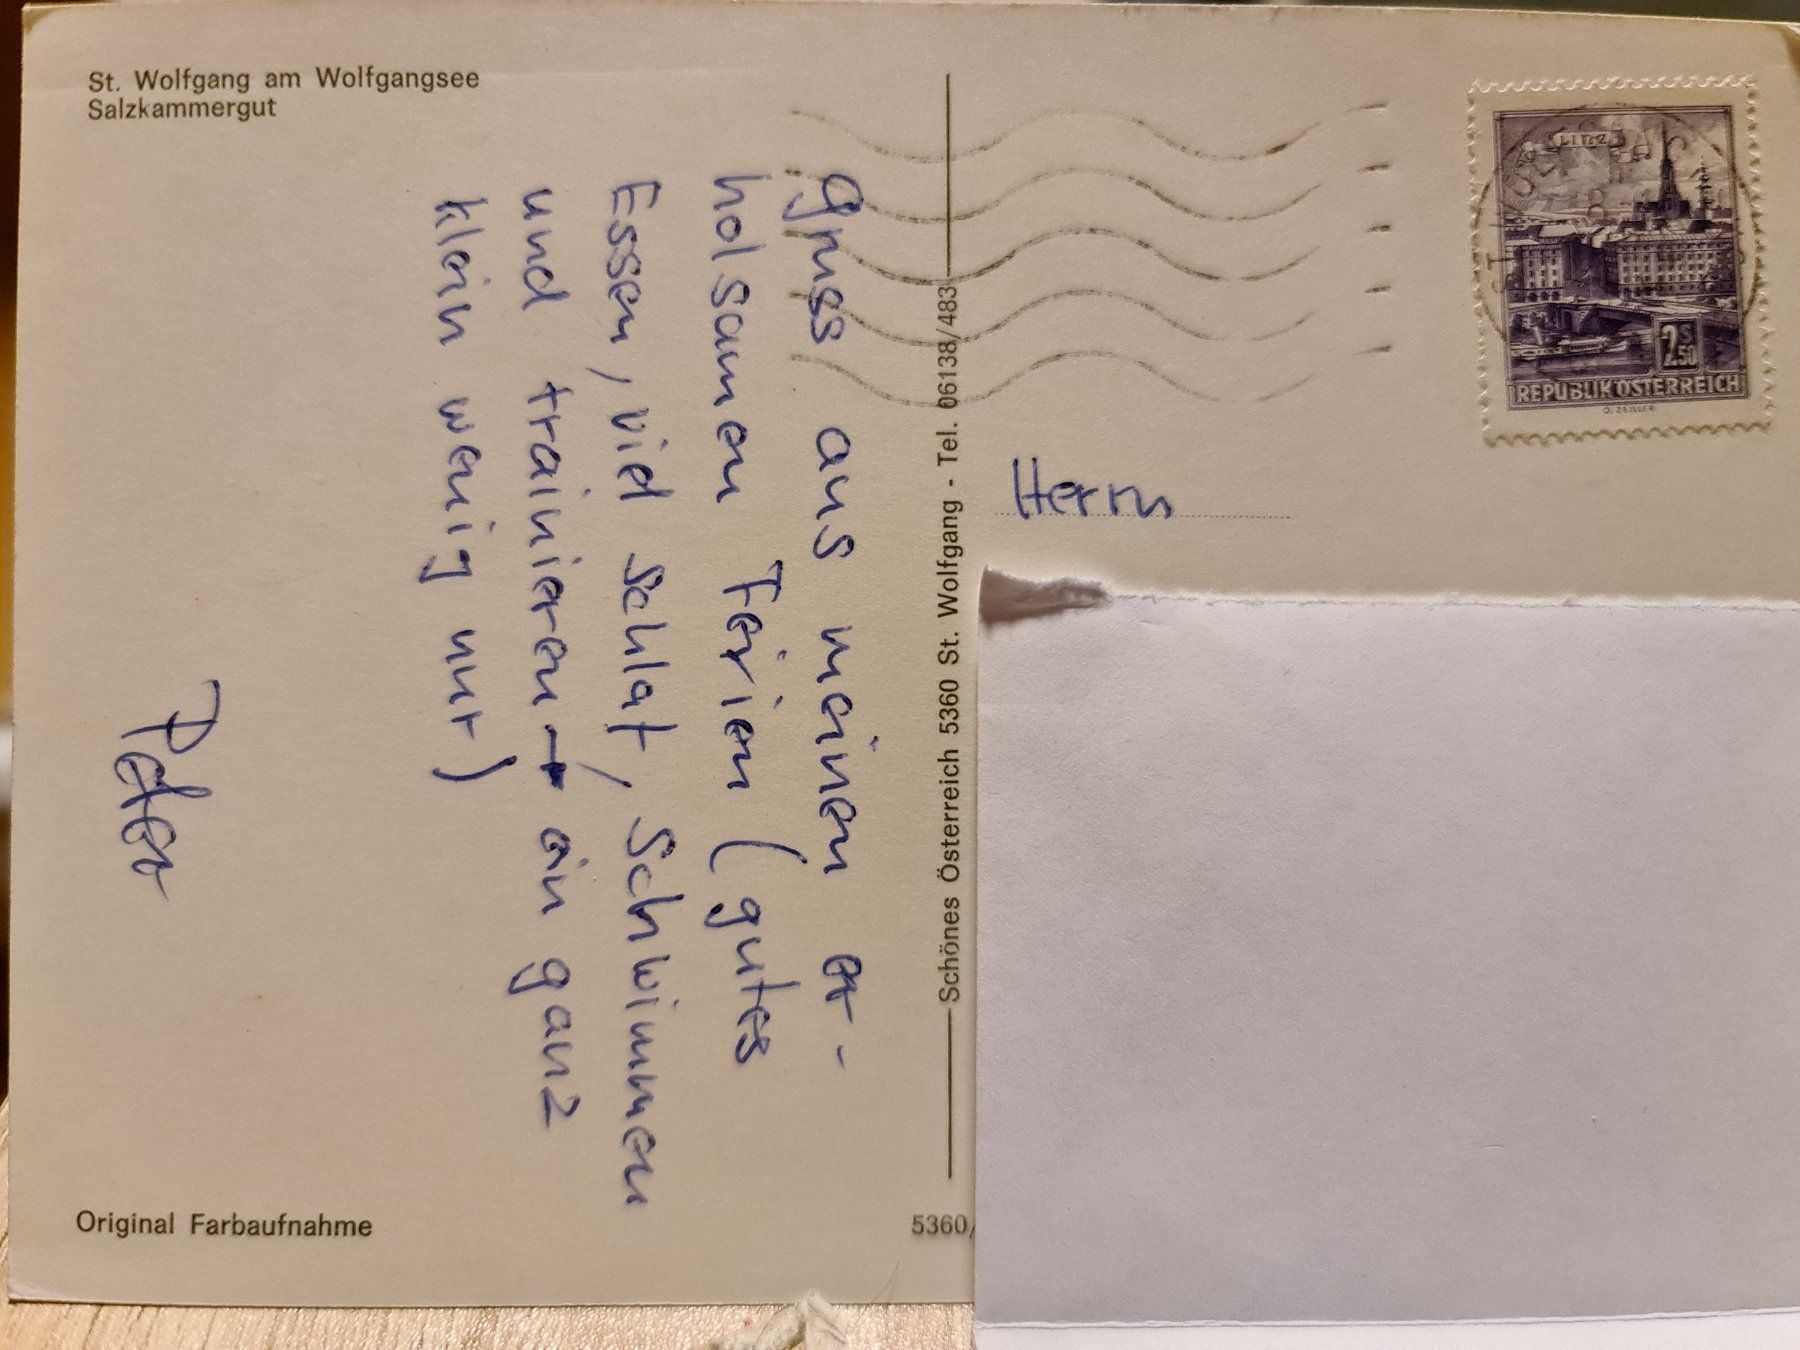 St. Wolfgang am Wolfgangsee
Salzkammergut
Gruss aus meinen er-
holsamen Ferien (gutes
Essen, viel Schlaf, Schwimmen
und trainieren → ein ganz
klein wenig nur)
Peter
Original Farbaufnahme
Schönes Österreich 5360 St. Wolfgang - Tel. 06138/483
5360/
LINZ
2S
50
REPUBLIK ÖSTERREICH
Herrn